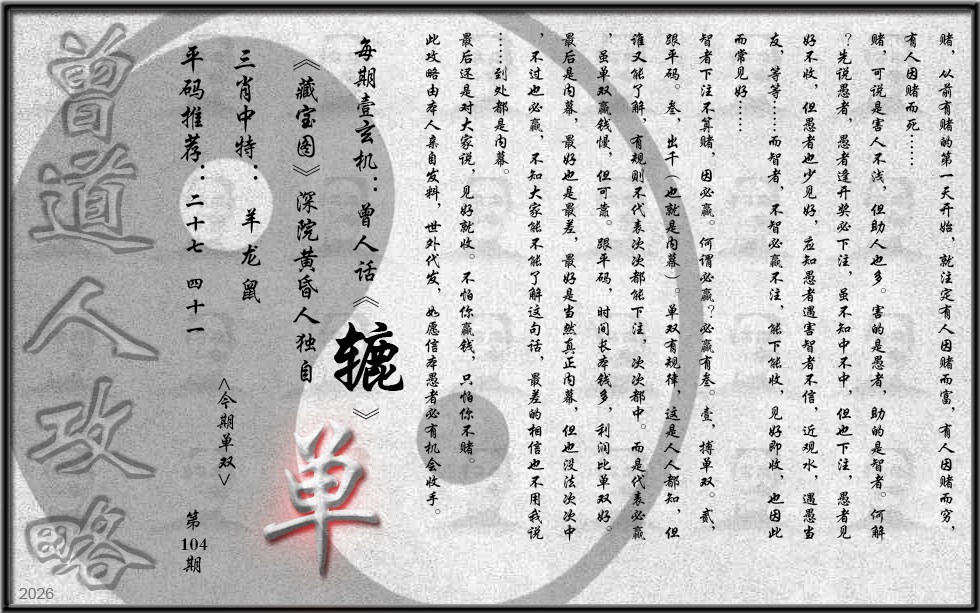 赌，从前有赌的第一天开始，就注定有人因赌而富，有人因赌而穷，
有人因赌而死……
赌，可说是害人不浅，但助人也多。害的是愚者，助的是智者。何解
？先说愚者，愚者逢开奖必下注，虽不知中不中，但也下注，愚者见
好不收，但愚者也少见好，应知愚者遇害智者不信，近观水，遇愚当
友，等等……而智者，不智必赢不注，能下能收，见好即收，也因此
而常见好……
智者下注不算赌，因必赢。何谓必赢？必赢有叁。壹，搏单双。贰，
跟平码。叁，出千（也就是内幕）。单双有规律，这是人人都知，但
谁又能了解，有规则不代表次次都能下注，次次都中。而是代表必赢
，虽单双赢钱慢，但可靠。跟平码，时间长本钱多，利润比单双好。
最后是内幕，最好也是最差，最好是当然真正内幕，但也没法次次中
，不过也必赢，不知大家能不能了解这句话，最差的相信也不用我说
……到处都是内幕。
最后还是对大家说，见好就收。不怕你赢钱，只怕你不赌。
此攻略由本人亲自发料，世外代发，如愿信本愚者必有机会收手。
每期壹玄机：曾人话《辘》
《藏宝图》深院黄昏人独自
单
三肖中特：羊龙鼠
<今期单双>
平码推荐：二十七 四十一
第104期
曾道人攻略
2026